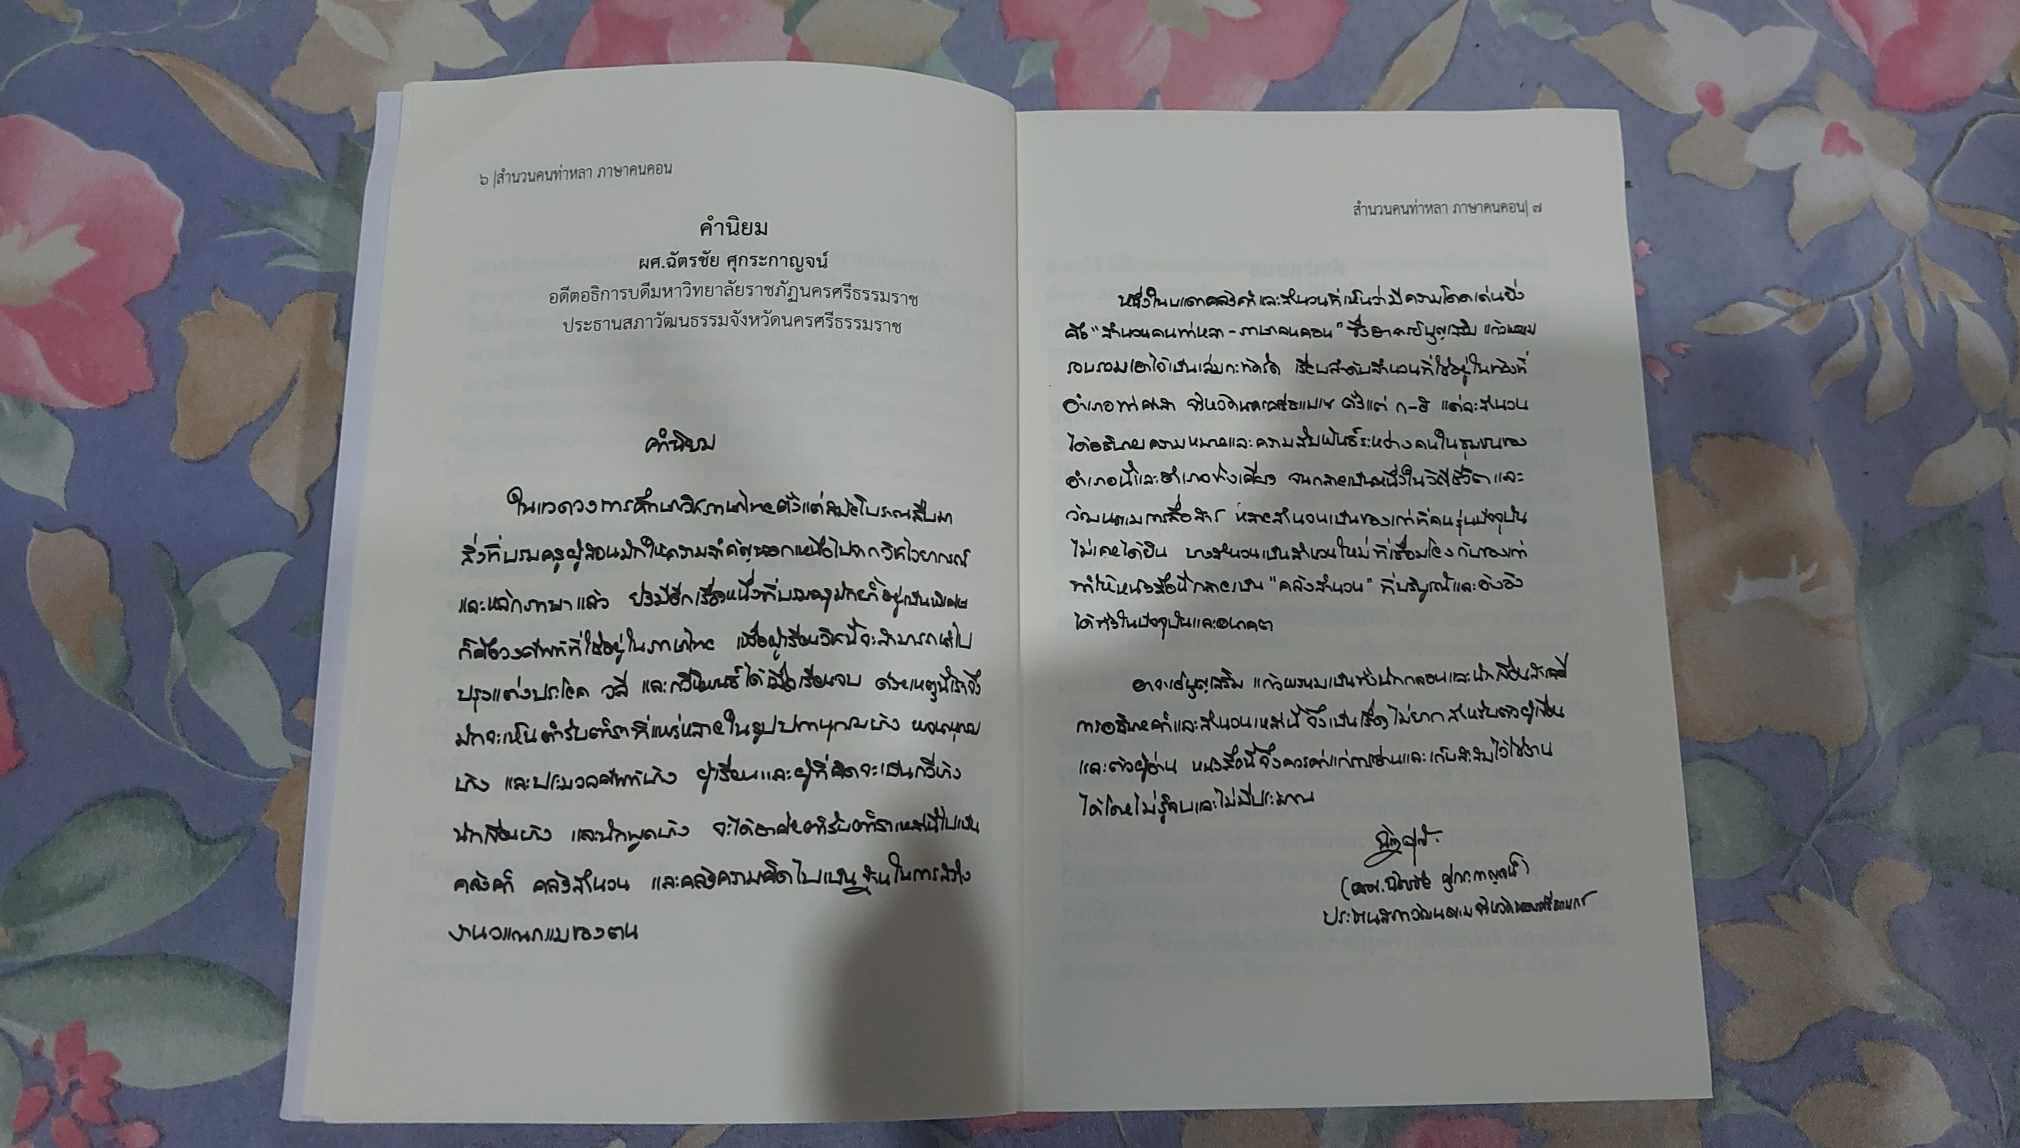 ๖ |สำนวนคนท่าหลา ภาษาคนคอน
คำนิยม
ผศ.ฉัตรชัย ศุกระกาญจน์
อดีตอธิการบดีมหาวิทยาลัยราชภัฏนครศรีธรรมราช
ประธานสภาวัฒนธรรมจังหวัดนครศรีธรรมราช
คำนิยม
ในแวดวงการศึกษาวิชาภาษาไทยตั้งแต่สมัยโบราณสืบมา
สิ่งที่บรมครูผู้สอนมักให้ความสำคัญนอกเหนือไปจากวิชาไวยากรณ์
และหลักภาษาแล้ว ยังมีอีกเรื่องหนึ่งที่บรมครูมักย้ำอยู่เป็นพิเศษ
ก็คือวงศัพท์ที่ใช้อยู่ในภาษาไทย เพื่อผู้เรียนวิชานี้จะสามารถนำไป
ปรุงแต่งประโยค วลี และกวีนิพนธ์ได้เมื่อเรียนจบ ด้วยเหตุนี้เราจึง
มักจะเห็นตำรับตำราที่แพร่หลายในรูปปทานุกรมบ้าง พจนานุกรม
บ้าง และประมวลศัพท์บ้าง ผู้เรียนและผู้ที่คิดจะเป็นกวีบ้าง
นักเขียนบ้าง และนักพูดบ้าง จะได้อาศัยตำรับตำราเหล่านี้ไปเป็น
คลังคำ คลังสำนวน และคลังความคิดไปเป็นฐานในการสร้าง
งานวรรณกรรมของตน
สำนวนคนท่าหลา ภาษาคนคอน| ๗
หนึ่งในบรรดาคลังคำและสำนวนที่เห็นว่ามีความโดดเด่นยิ่ง
คือ "สำนวนคนท่าหลา - ภาษาคนคอน" ซึ่งอาจารย์บุญเสริม แก้วพรหม
รวบรวมเอาไว้เป็นเล่มกะทัดรัด เรียบลำดับสำนวนที่ใช้อยู่ในท้องที่
อำเภอท่าศาลา จังหวัดนครศรีธรรมราช ตั้งแต่ ก-ฮ แต่ละสำนวน
ได้อธิบายความหมายและความสัมพันธ์ระหว่างคนในชุมชนของ
อำเภอนี้และอำเภอข้างเคียง จนกลายเป็นหนึ่งในวิถีชีวิตและ
วัฒนธรรมการสื่อสาร หลายสำนวนเป็นของเก่าที่คนรุ่นปัจจุบัน
ไม่เคยได้ยิน บางสำนวนเป็นสำนวนใหม่ที่เชื่อมโยงกับของเก่า
ทำให้หนังสือนี้กลายเป็น "คลังสำนวน" ที่บริบูรณ์และอ้างอิง
ได้ทั้งในปัจจุบันและอนาคต
อาจารย์บุญเสริม แก้วพรหมเป็นทั้งนักกลอนและนักเขียนสารคดี
การอธิบายคำและสำนวนเหล่านี้ จึงเป็นเรื่องไม่ยาก สำหรับตัวผู้เขียน
และตัวผู้อ่าน หนังสือนี้จึงควรค่าแก่การอ่านและเก็บสะสมไว้ใช้งาน
ได้โดยไม่รู้จบและไม่มีประมาณ
(ผศ.ฉัตรชัย ศุกระกาญจน์)
ประธานสภาวัฒนธรรมจังหวัดนครศรีธรรมราช